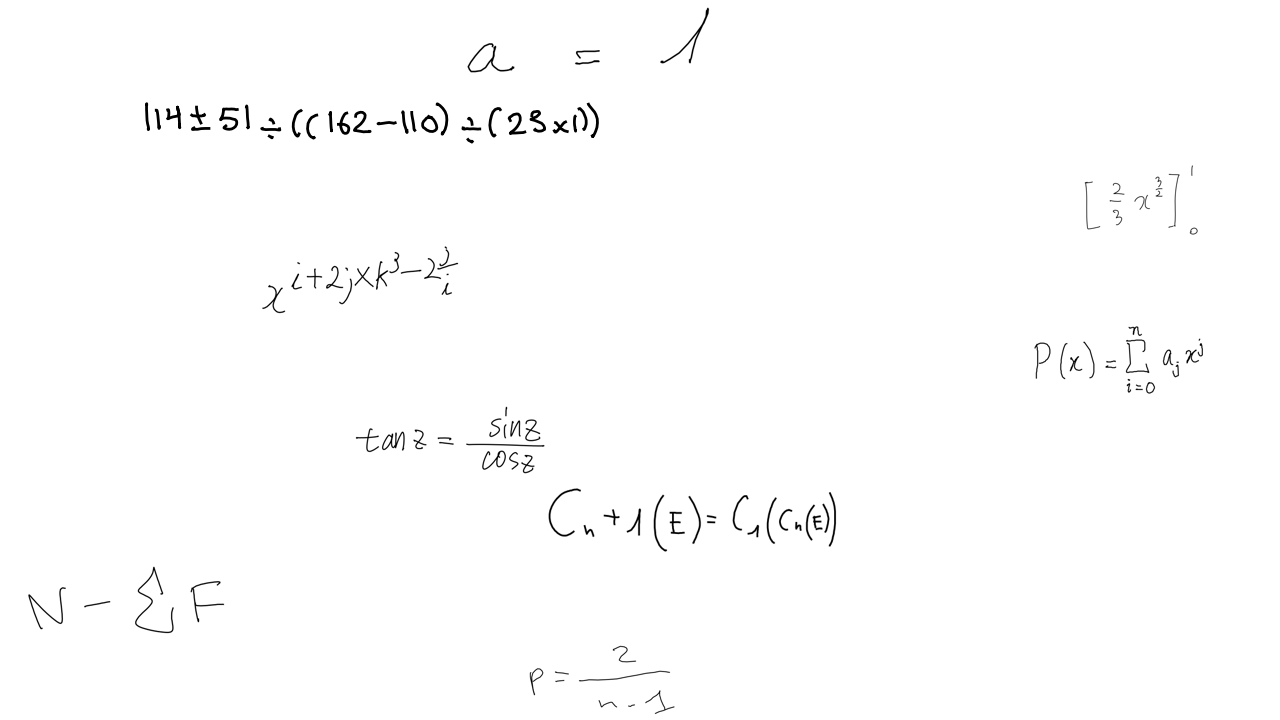 a = 1
|14 ± 5| ÷ ((162 − 110) ÷ (23 × 1))
[ \frac{2}{3} x^{\frac{3}{2}} ]_0^1
x^{i+2j×k^3−2\frac{j}{i}}
P(x) = \sum_{i=0}^{n} a_j x^j
tan z = \frac{sin z}{cos z}
C_n + 1(E) = C_1(C_n(E))
N − ∑ F
p = \frac{2}{n-1}